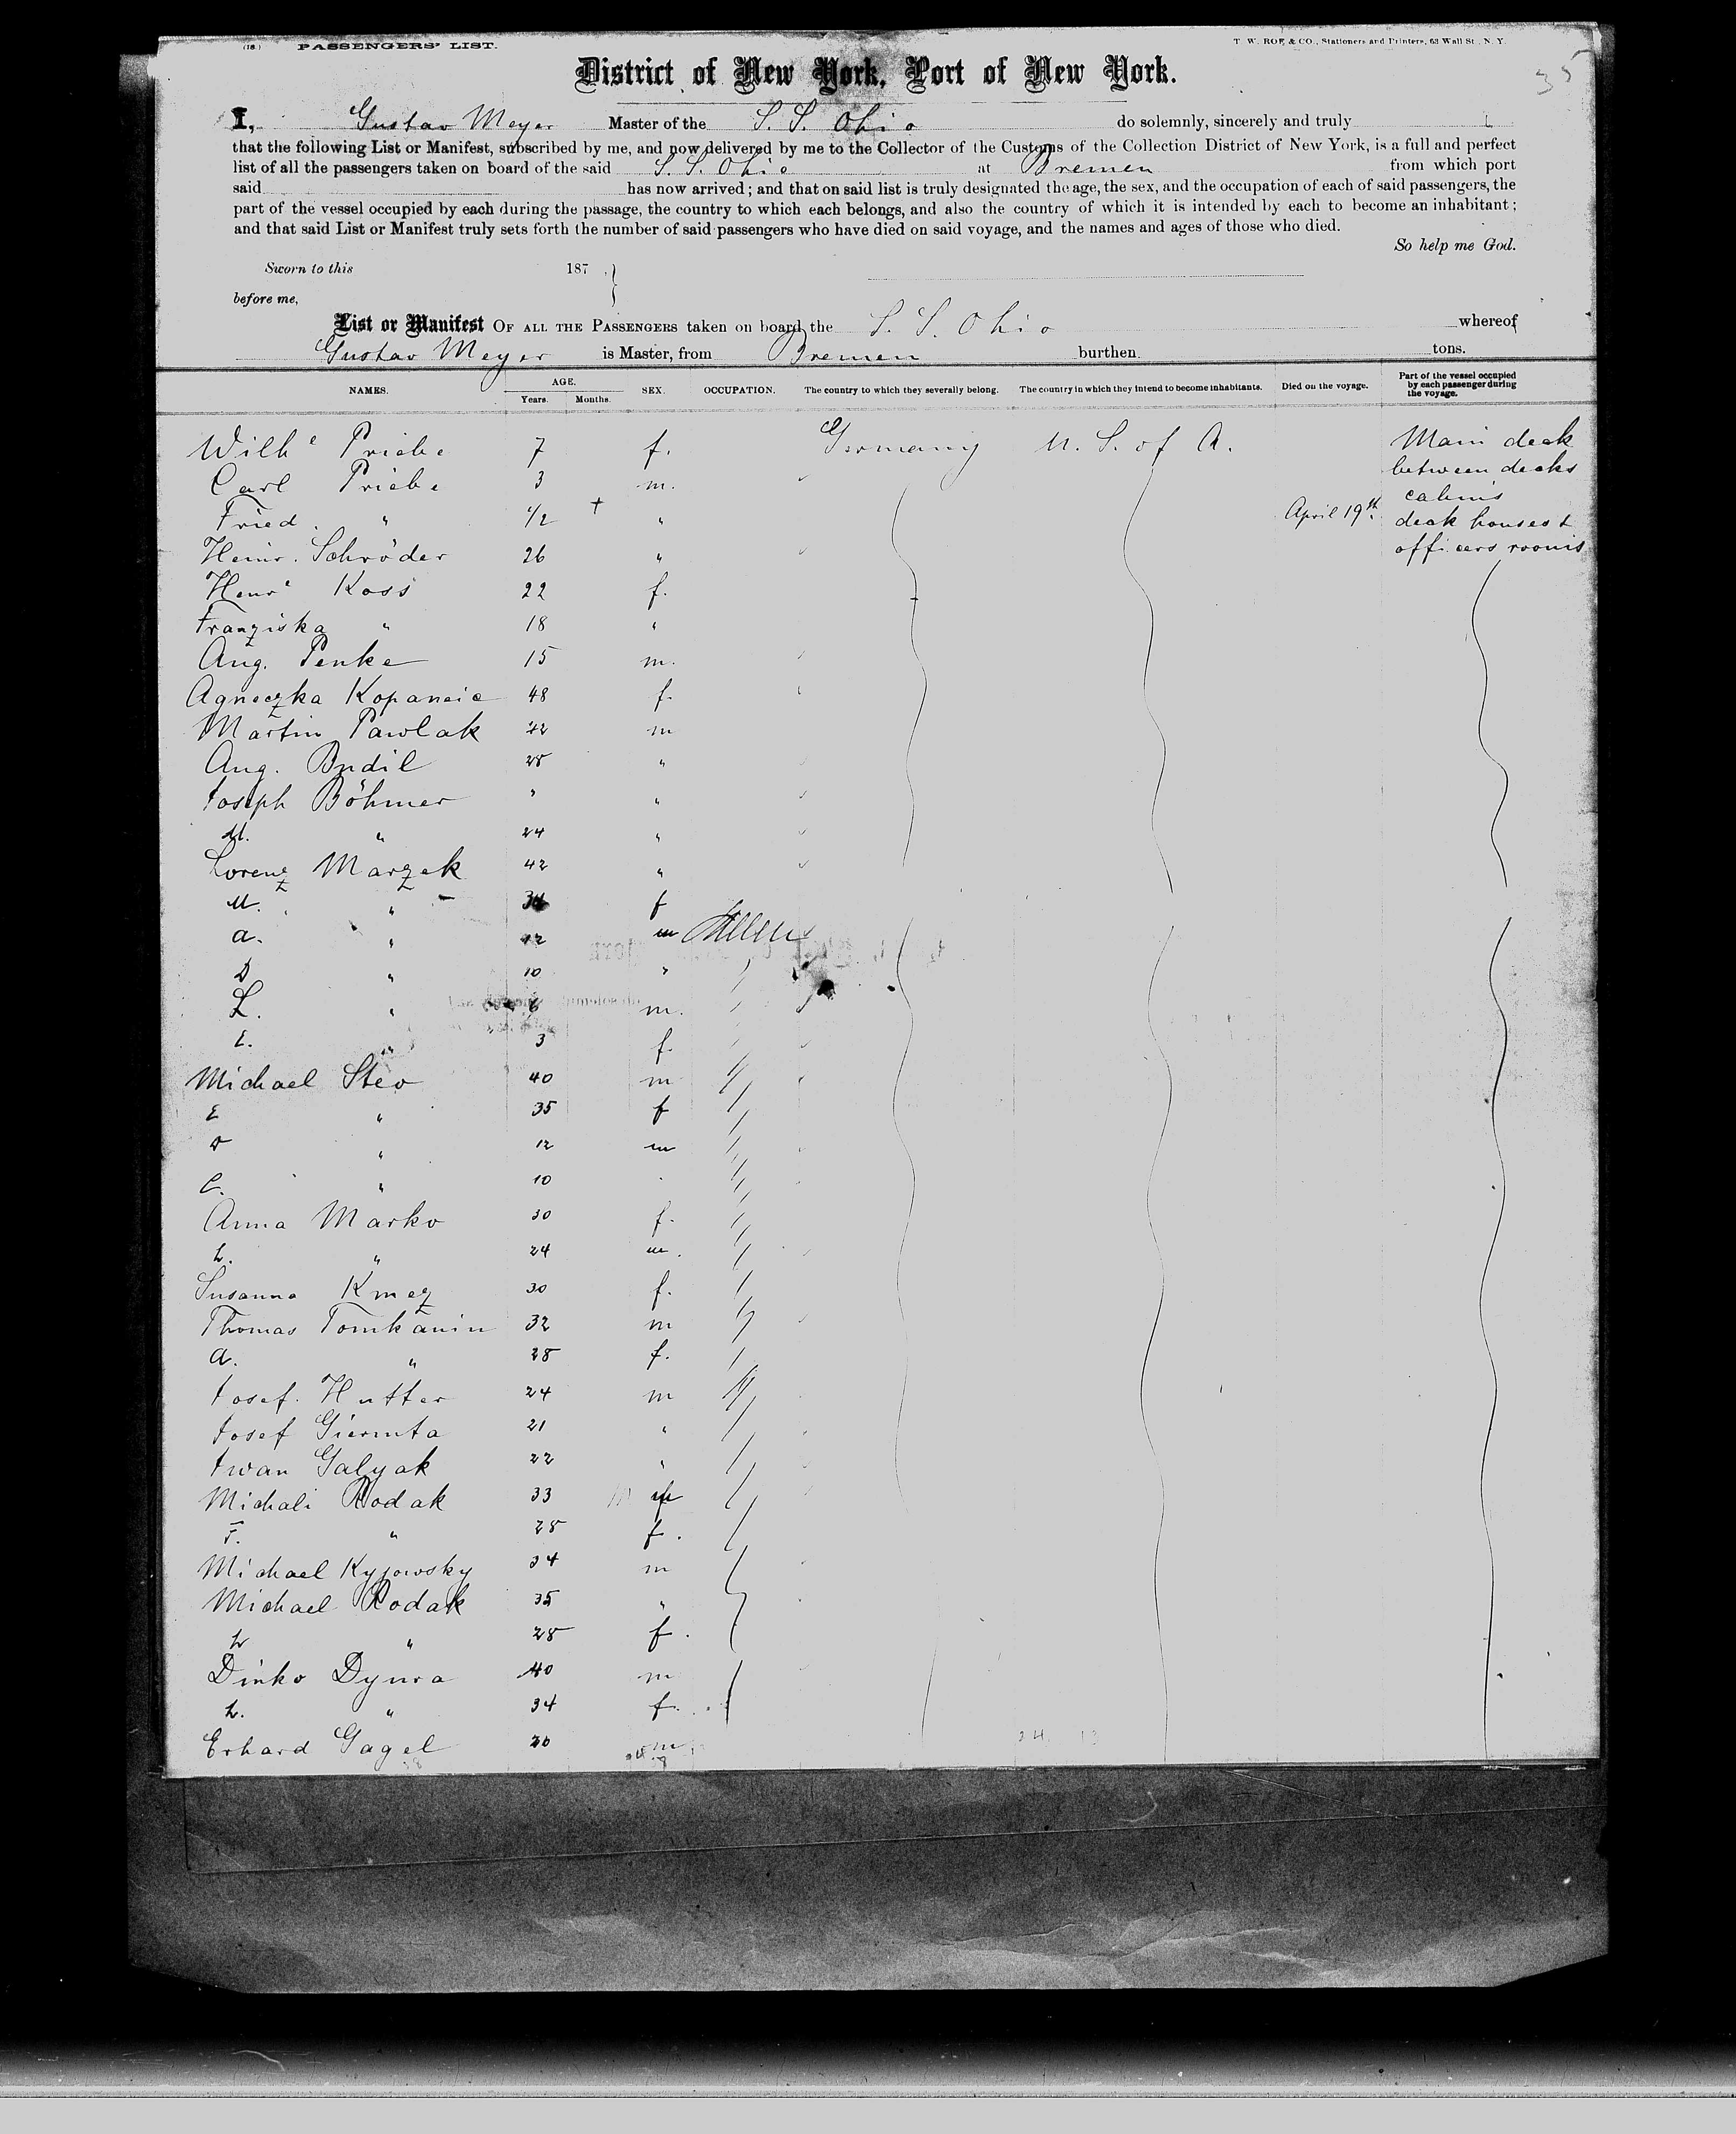 (18.) PASSENGERS' LIST. T. W. ROE & CO., Stationers and Printers, 63 Wall St., N. Y.
35
District of New York, Port of New York.
I, Gustav Meyer Master of the S. S. Ohio do solemnly, sincerely and truly
that the following List or Manifest, subscribed by me, and now delivered by me to the Collector of the Customs of the Collection District of New York, is a full and perfect
list of all the passengers taken on board of the said S. S. Ohio at Bremen from which port
said has now arrived; and that on said list is truly designated the age, the sex, and the occupation of each of said passengers, the
part of the vessel occupied by each during the passage, the country to which each belongs, and also the country of which it is intended by each to become an inhabitant;
and that said List or Manifest truly sets forth the number of said passengers who have died on said voyage, and the names and ages of those who died.
So help me God.
Sworn to this 187
before me,
List or Manifest OF ALL THE PASSENGERS taken on board the S. S. Ohio whereof
Gustav Meyer is Master, from Bremen burthen tons.
NAMES. AGE. Years. Months. SEX. OCCUPATION. The country to which they severally belong. The country in which they intend to become inhabitants. Died on the voyage. Part of the vessel occupied by each passenger during the voyage.
Wilhe Priebe 7 f. Germany U. S. of A. Main deck
between decks
Carl Priebe 3 m. cabins
Fried. " 1/2 + " April 19th deck houses &
Heinr. Schröder 26 " officers rooms
Henre Koss 22 f.
Franziska " 18 "
Aug. Penke 15 m.
Agneczka Kopaneia 48 f.
Martin Pawlak 42 m
Aug. Budil 28 "
Joseph Böhmer " "
M. " 24 "
Lorenz Marzek 42 "
M. " 34 f
A. " 12 m
D " 10 "
L. " 6 m.
E. " 3 f.
Michael Stev 40 m
E " 35 f
" 12 m
C. " 10
Anna Marko 30 f.
" 24 m.
Susanna Kmez 30 f.
Thomas Tomkanin 32 m
A. " 28 f.
Josef. Hutter 24 m
Josef Giermta 21 "
Iwan Galyak 22 "
Michali Rodak 33 m
F. " 28 f.
Michael Kyjowsky 34 m
Michael Rodak 35 "
" 28 f.
Dinko Dyura 40 m
" 34 f.
Erhard Gagel 20 m
24 13